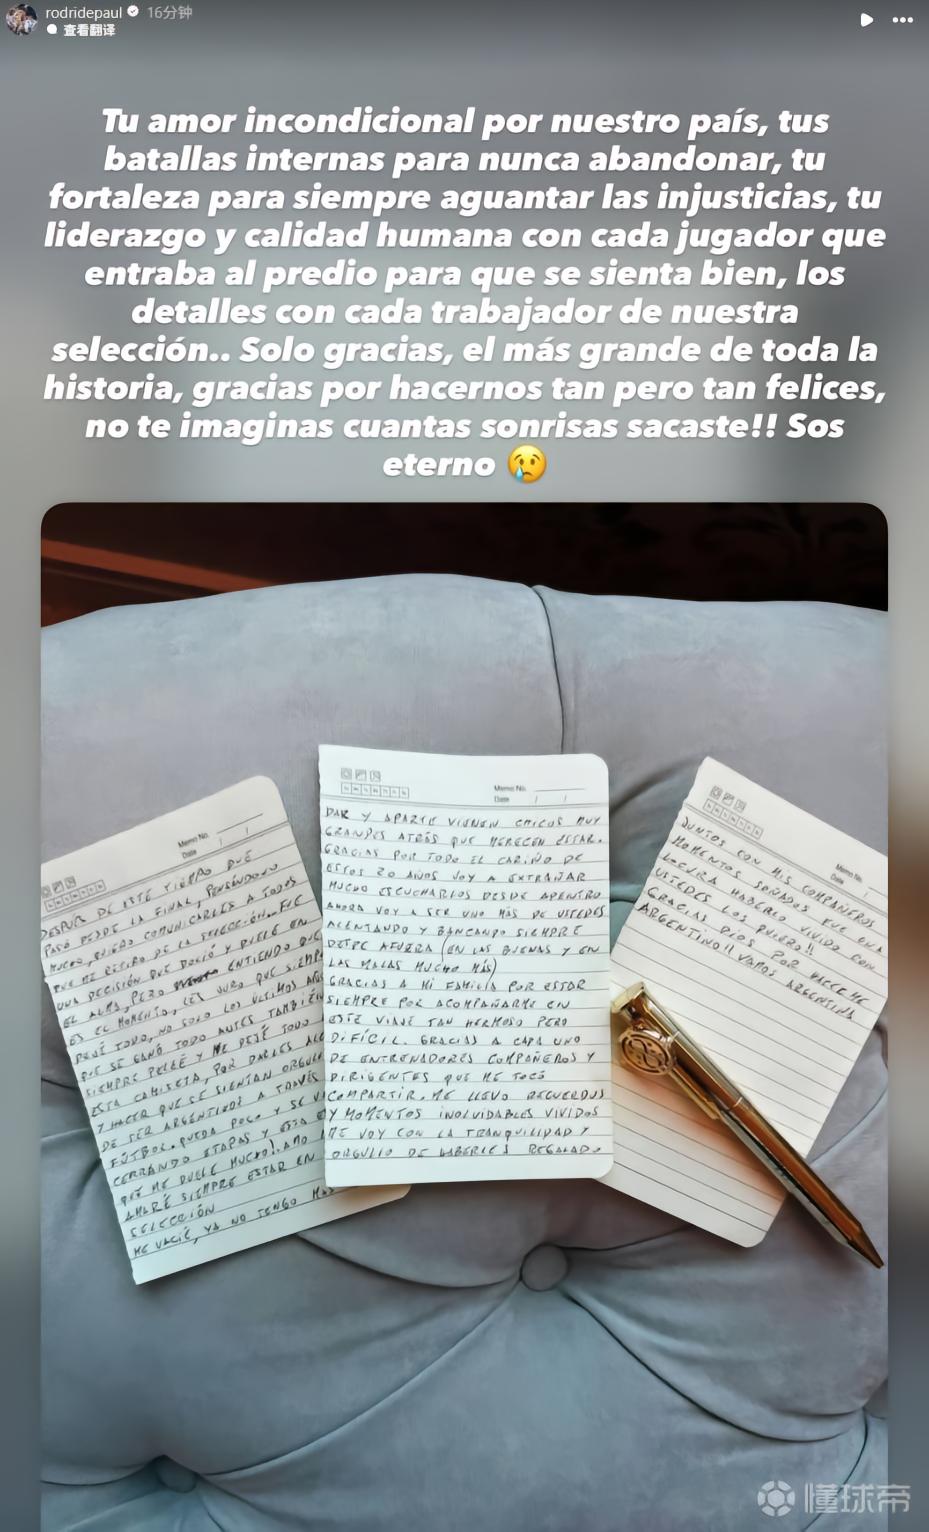 rodridepaul 16分钟
查看翻译
Tu amor incondicional por nuestro país, tus
batallas internas para nunca abandonar, tu
fortaleza para siempre aguantar las injusticias, tu
liderazgo y calidad humana con cada jugador que
entraba al predio para que se sienta bien, los
detalles con cada trabajador de nuestra
selección.. Solo gracias, el más grande de toda la
historia, gracias por hacernos tan pero tan felices,
no te imaginas cuantas sonrisas sacaste!! Sos
eterno 😢
Memo No.
Date / /
DESPUÉS DE ESTE TIEMPO QUE
PASÓ DESDE LA FINAL, PENSÁNDOLO
MUCHO, QUIERO COMUNICARLES A TODOS
QUE MI RETIRO DE LA SELECCIÓN.. FUE
UNA DECISIÓN QUE DOLIÓ Y DUELE EN
EL ALMA, PERO ENTIENDO QUE
ES EL MOMENTO, LES JURO QUE SIEMP
DEJÉ TODO, NO SOLO LOS ÚLTIMOS AÑ
QUE SE GANÓ TODO, ANTES TAMBIÉN
SIEMPRE PELEÉ Y ME DEJÉ TODO
ESTA CAMISETA, POR DARLES ALE
Y HACER QUE SE SIENTAN ORGULL
DE SER ARGENTINOS A TRAVÉS
FÚTBOL. QUEDA POCO Y SE V
CERRANDO ETAPAS Y ESTA
QUE ME DUELE MUCHO! AMO
AMARÉ SIEMPRE ESTAR EN
SELECCIÓN
ME VACIÉ, YA NO TENGO MÁS
Memo No.
Date / /
DAR Y APARTE VIENEN CHICOS MUY
GRANDES ATRÁS QUE MERECEN ESTAR.
GRACIAS POR TODO EL CARIÑO DE
ESTOS 20 AÑOS VOY A EXTRAÑAR
MUCHO ESCUCHARLOS DESDE ADENTRO
AHORA VOY A SER UNO MÁS DE USTEDES
ALENTANDO Y BANCANDO SIEMPRE
DESDE AFUERA (EN LAS BUENAS Y EN
LAS MALAS MUCHO MÁS)
GRACIAS A MI FAMILIA POR ESTAR
SIEMPRE POR ACOMPAÑARME EN
ESTE VIAJE TAN HERMOSO PERO
DIFÍCIL. GRACIAS A CADA UNO
DE ENTRENADORES COMPAÑEROS Y
DIRIGENTES QUE ME TOCÓ
COMPARTIR. ME LLEVO RECUERDOS
Y MOMENTOS INOLVIDABLES VIVIDOS
ME VOY CON LA TRANQUILIDAD Y
ORGULLO DE HABERLES REGALADO
Memo No.
Date
JUNTOS CON MIS COMPAÑEROS
MOMENTOS SOÑADOS FUE UNA
LOCURA HABERLO VIVIDO CON
USTEDES LOS QUIERO!!
GRACIAS DIOS POR HACERME
ARGENTINO!! VAMOS ARGENTINA
懂球帝